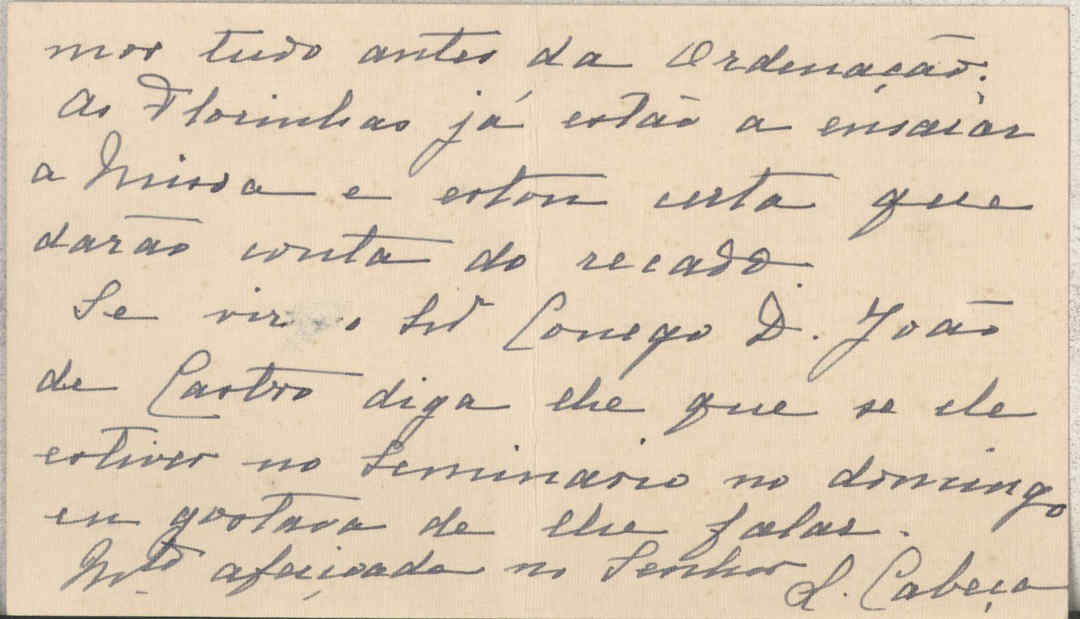 mos tudo antes da Ordenação.
As Florinhas já estão a ensaiar
a Missa e estou certa que
darão conta do recado.
Se vir o Snr Conego D. João
de Castro diga lhe que se ele
estiver no Seminario no domingo
eu gostava de lhe falar.
Mto afeiçoada no Senhor L. Cabeça